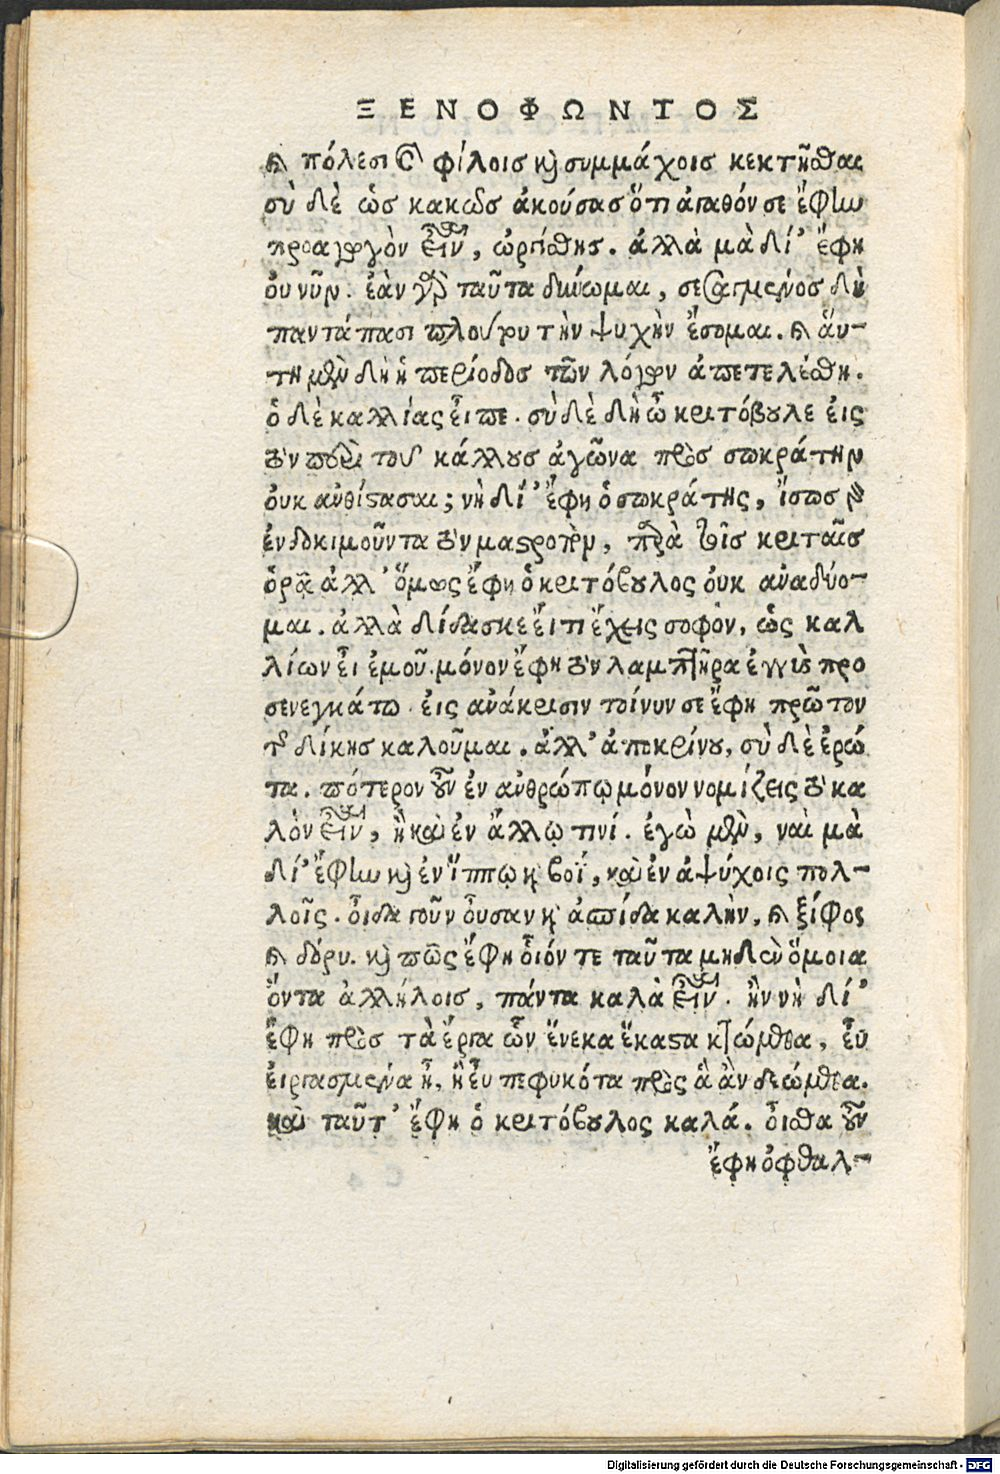 ΞΕΝΟΦΩΝΤΟΣ
καὶ πόλεσι καὶ φίλοισ καὶ συμμάχοισ κεκτῆσθαι
σὺ δὲ ὡσ κακῶσ ἀκούσασ ὅτι ἀγαθόν σε ἔφην
προαγωγὸν εἶναι, ὠργίσθησ. ἀλλὰ μὰ δί' ἔφη
ὀυ νῦν. ἐὰν γὰρ ταῦτα δύνωμαι, σεσαγμένοσ δὴ
παντάπασι πλούτου τὴν ψυχὴν ἔσομαι. καὶ ἅυ-
τη μὲν δὴ ἡ περίοδοσ τῶν λόγων ἀπετελέσθη.
ὁ δὲ καλλίας εἶπε. σὺ δὲ δὴ ὦ κριτόβουλε ἐις
τὸν περὶ τοῦ κάλλουσ ἀγῶνα πρὸσ σωκράτην
ὀυκ ἀνθίστασαι; νὴ δί' ἔφη ὁ σωκράτης, ἴσωσ γὰρ
ἐνδοκιμοῦντα τὸν μαστροπὸν, παρὰ τοῖσ κριταῖσ
ὁρᾷ ἀλλ' ὅμως ἔφη ὁ κριτόβουλος ὀυκ ἀναδύο-
μαι. ἀλλὰ δίδασκε ἔι τι ἔχεις σοφὸν, ὡς καλ
λίων εἶ ἐμοῦ. μόνον ἔφη τὸν λαμπτῆρα ἐγγὺς προ
σενεγκάτω. ἐις ἀνάκρισιν τοίνυν σε ἔφη πρῶτον
τῆσ δίκησ καλοῦμαι. ἀλλ' ἀποκρίνου, σὺ δὲ ἐρώ
τα. πότερον οὖν ἐν ἀνθρώπῳ μόνον νομίζεις τὸ κα
λὸν εἶναι, ἢ καὶ ἐν ἄλλῳ τινί. ἐγὼ μὲν, ναὶ μὰ
δί' ἔφην καὶ ἐν ἵππῳ καὶ βοΐ, καὶ ἐν ἀψύχοις πολ-
λοῖς. οἶδα γοῦν οὖσαν καὶ ἀσπίδα καλὴν, καὶ ξίφος
καὶ δόρυ. καὶ πῶς ἔφη οἷόν τε ταῦτα μηδὲν ὅμοια
ὄντα ἀλλήλοισ, πάντα καλὰ εἶναι. ἢν νὴ δί'
ἔφη πρὸσ τὰ ἔργα ὧν ἕνεκα ἕκαστα κτώμεθα, εὖ
ἐιργασμένα ᾖ, ἢ ἐυ πεφυκότα πρὸς ἃ ἂν δεώμεθα.
καὶ ταῦτ' ἔφη ὁ κριτόβουλος καλά. οἶσθα οὖν
ἔφη ὀφθαλ-
Digitalisierung gefördert durch die Deutsche Forschungsgemeinschaft - DFG